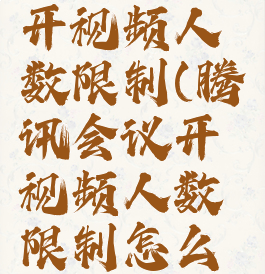 开视频人
数限制(腾
讯会议开
视频人数
限制怎么